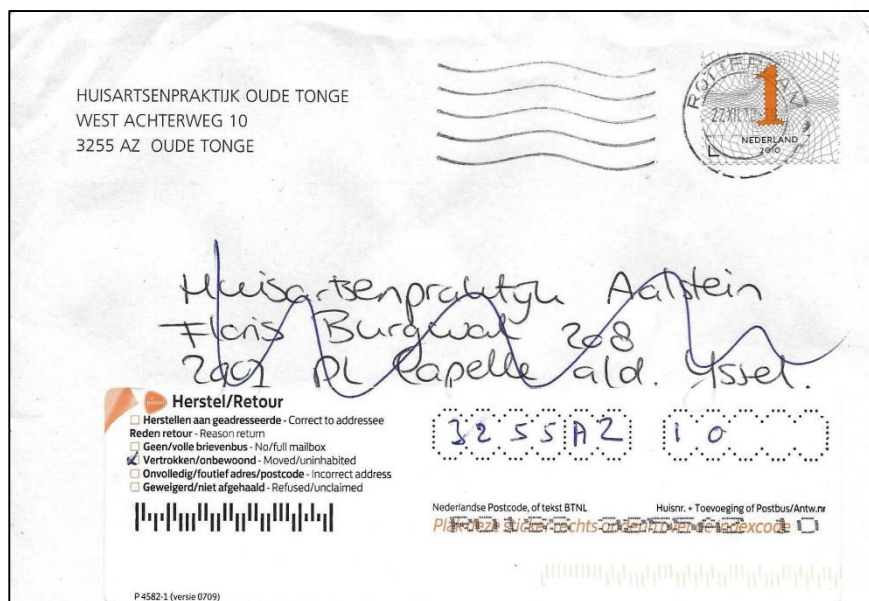 HUISARTSENPRAKTIJK OUDE TONGE
WEST ACHTERWEG 10
3255 AZ OUDE TONGE
ROTTERDAM
1
NEDERLAND
2010
Huisartsenpraktijk Aalstein
Floris Burgwal 208
PL Capelle a/d. Yssel.
Herstel/Retour
Herstellen aan geadresseerde - Correct to addressee
Reden retour - Reason return
Geen/volle brievenbus - No/full mailbox
Vertrokken/onbewoond - Moved/uninhabited
Onvolledig/foutief adres/postcode - Incorrect address
Geweigerd/niet afgehaald - Refused/unclaimed
3255AZ 10
Nederlandse Postcode, of tekst BTNL
Huisnr. + Toevoeging of Postbus/Antw.nr
Plak deze sticker rechts onderin over de indexcode
P 4582-1 (versie 0709)